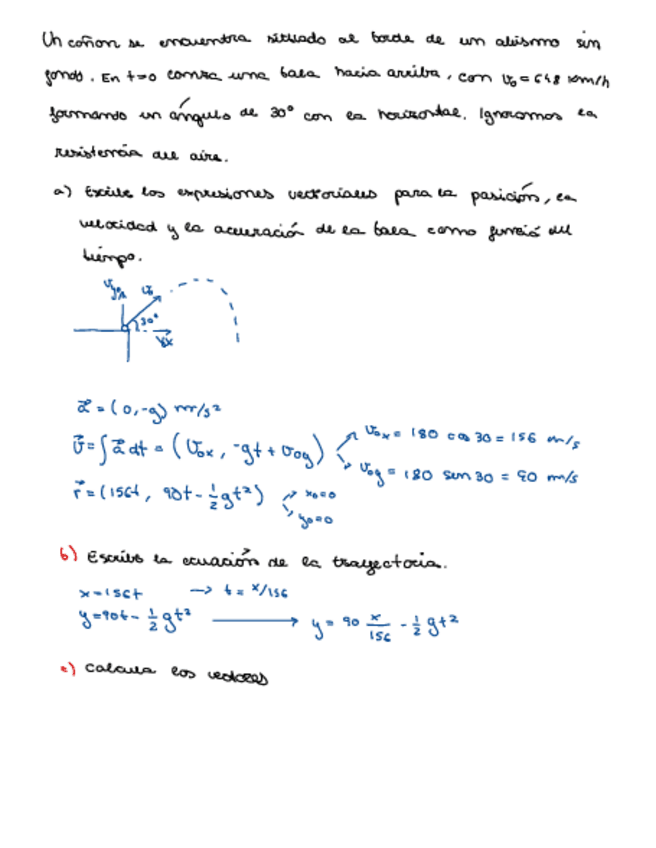 Un cañon se encuentra situado al borde de un abismo sin
fondo. En t=0 lanza una bala hacia arriba, con v₀=648 km/h
formando un ángulo de 30° con la horizontal. Ignoramos la
resistencia del aire.
a) Escribe los expresiones vectoriales para la posición, la
velocidad y la aceleración de la bala como funció del
tiempo.
v₀
30°
a⃗ = (0,-g) m/s²
v⃗ = ∫ a⃗ dt = (v₀x, -gt + v₀y)
v₀x = 180 cos 30 = 156 m/s
v₀y = 180 sen 30 = 90 m/s
r⃗ = (156t, 90t - 1/2 gt²)
x₀=0
y₀=0
b) Escribe la ecuación de la trayectoria.
x=156t → t = x/156
y=90t - 1/2 gt² → y = 90 x/156 - 1/2 gt²
c) Calcula los vectores